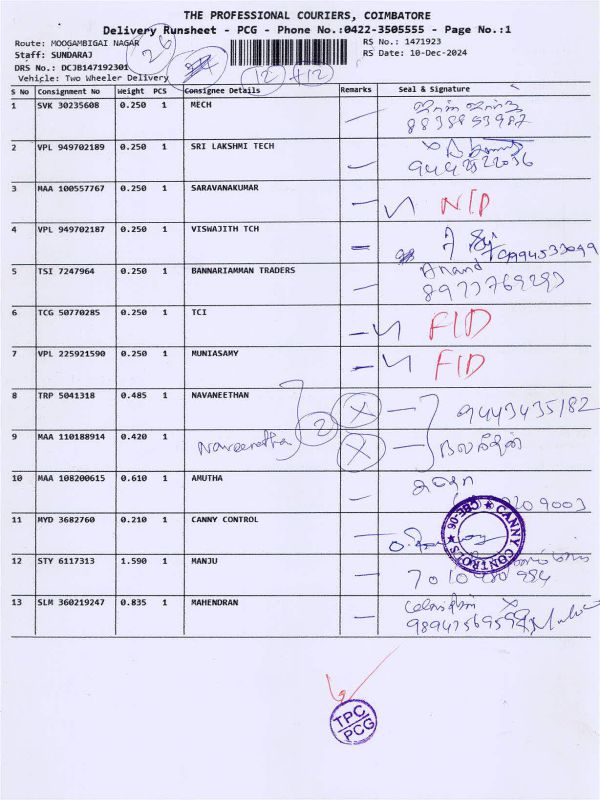 THE PROFESSIONAL COURIERS, COIMBATORE
Delivery Runsheet - PCG - Phone No.:0422-3505555 - Page No.:1
Route: MOOGAMBIGAI NAGAR 26 RS No.: 1471923
Staff: SUNDARAJ RS Date: 10-Dec-2024
DRS No.: DCJB147192301
Vehicle: Two Wheeler Delivery 12 +12
S No Consignment No Weight PCS Consignee Details Remarks Seal & Signature
1 SVK 30235608 0.250 1 MECH
8838853987
2 VPL 949702189 0.250 1 SRI LAKSHMI TECH
9442522036
3 MAA 100557767 0.250 1 SARAVANAKUMAR N/D
4 VPL 949702187 0.250 1 VISWAJITH TCH
5 TSI 7247964 0.250 1 BANNARIAMMAN TRADERS Anand
6 TCG 50770285 0.250 1 TCI F/D
7 VPL 225921590 0.250 1 MUNIASAMY F/D
8 TRP 5041318 0.485 1 NAVANEETHAN X 9443435182
2
9 MAA 110188914 0.420 1 X
10 MAA 108200615 0.610 1 AMUTHA
11 MYD 3682760 0.210 1 CANNY CONTROL
CANNY CONTROLS ★ CBE-06 ★
12 STY 6117313 1.590 1 MANJU
13 SLM 360219247 0.835 1 MAHENDRAN
TPC
PCG